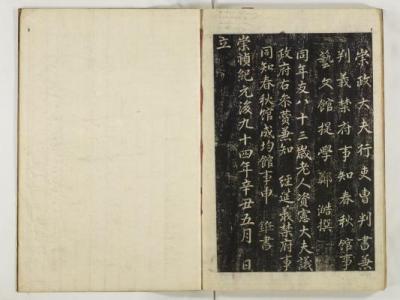 崇政大夫行吏曹判書兼
判義禁府事知春秋館事
藝文館提學鄭 澔撰
同年友八十三歲老人資憲大夫議
政府右參贊兼知 經筵義禁府事
同知春秋館成均館事申 銋書
崇禎紀元後九十四年辛丑五月 日
立